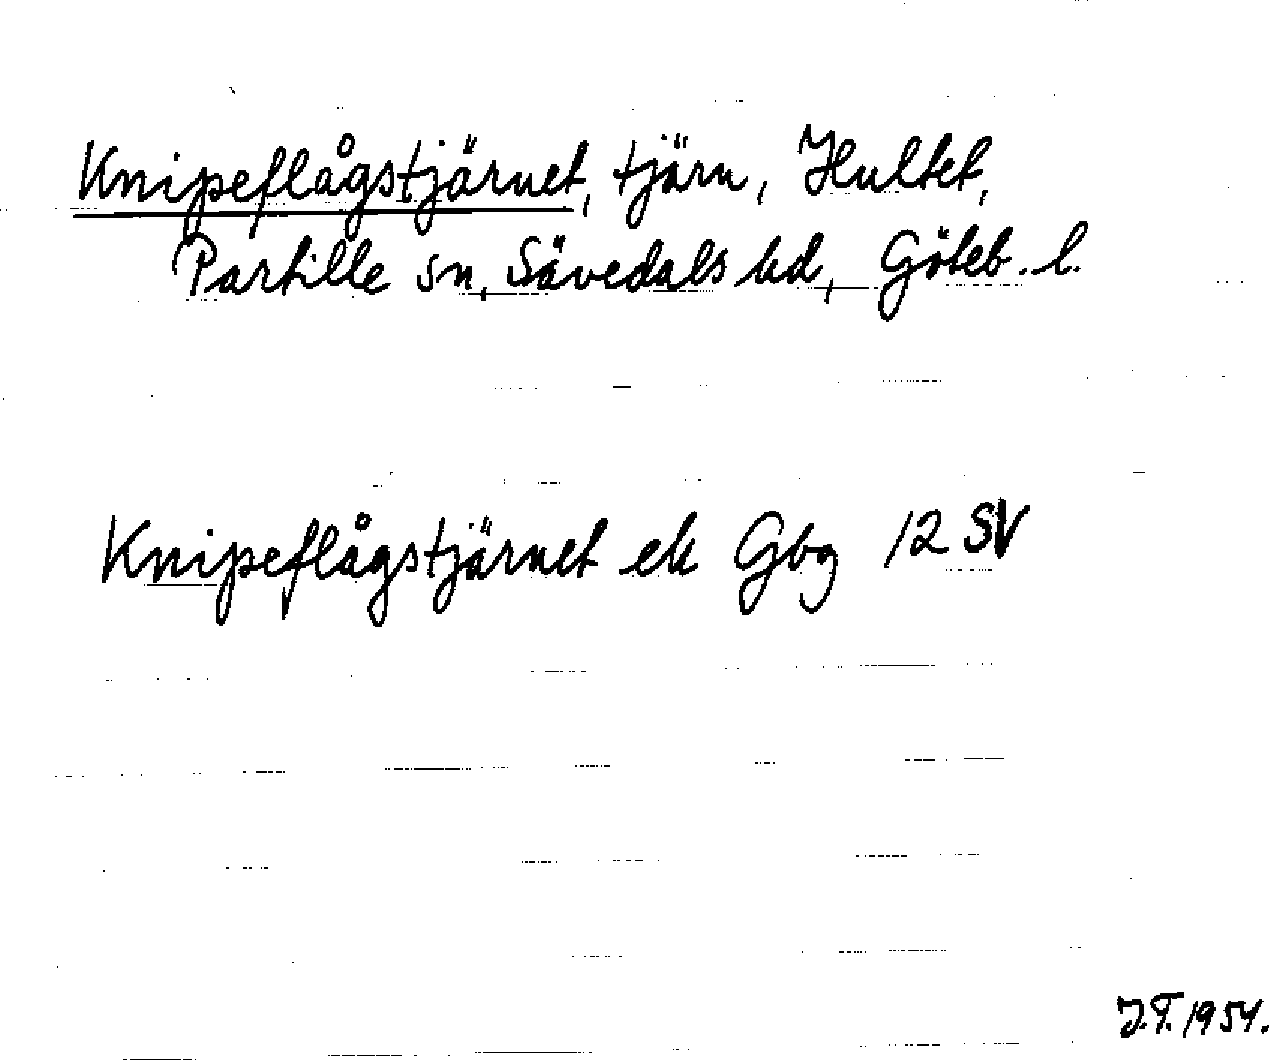 Knipeflågstjärnet, tjärn, Hultet,
Partille sn, Sävedals hd, Göteb. l.
Knipeflågstjärnet ek Gbg 12 SV
J.T. 1954.